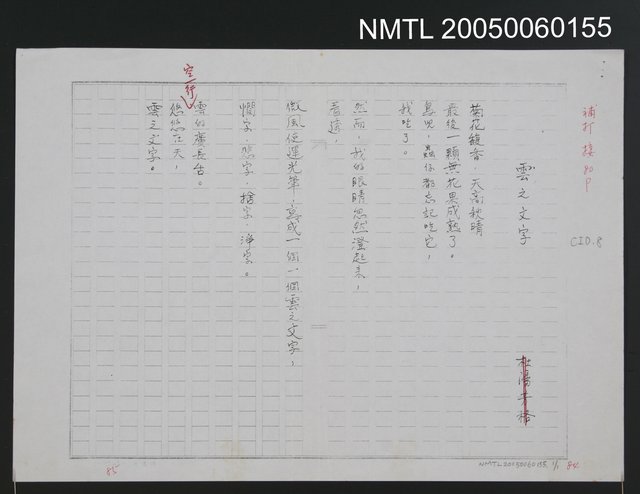 NMTL 20050060155
補打 接80P
CIO.8
雲之文字
菊花馥香，天高秋晴
最後一顆無花果成熟了。
鳥兒、蟲仔都忘記吃它，
我吃了。
然而，我的眼睛忽然澄起來，
看遠，
微風使運光筆，寫成一個一個雲之文字，
憫字、悲字、捨字、淨字。
空一行
雲的廣長舌。
悠悠在天，
雲之文字。
85
NMTL20050060155 1/1 84